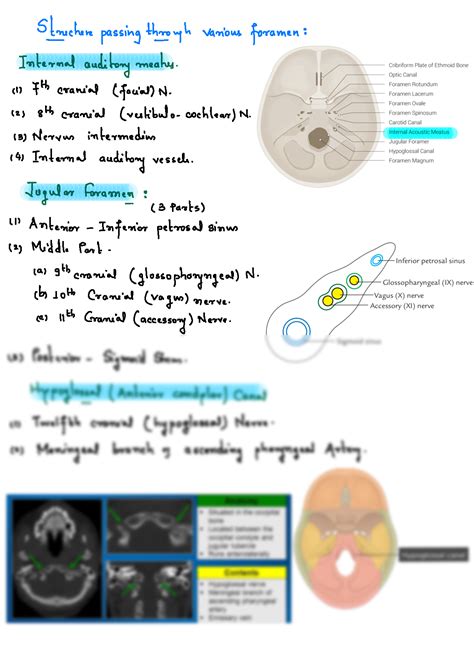 Structure passing through various foramen:
Internal auditory meatus.
(1) 7th cranial (facial) N.
(2) 8th cranial (vestibulo-cochlear) N.
(3) Nervus intermedius
(4) Internal auditory vessels.
Cribriform Plate of Ethmoid Bone
Optic Canal
Foramen Rotundum
Foramen Lacerum
Foramen Ovale
Foramen Spinosum
Carotid Canal
Internal Acoustic Meatus
Jugular Foramen
Hypoglossal Canal
Foramen Magnum
Jugular Foramen:
(3 Parts)
(1) Anterior - Inferior petrosal sinus
(2) Middle Part -
(a) 9th cranial (glossopharyngeal) N.
(b) 10th Cranial (vagus) nerve.
(c) 11th Cranial (accessory) Nerve.
Inferior petrosal sinus
Glossopharyngeal (IX) nerve
Vagus (X) nerve
Accessory (XI) nerve
Sigmoid sinus
(3) Posterior - Sigmoid
Hypoglossal (Anterior condylar) Canal
(1) Twelfth cranial (hypoglossal) Nerve.
(2) Meningeal branch of ascending pharyngeal Artery.
Anatomy
Situated in the occipital bone
Located between the occipital condyle and jugular tubercle
Runs anterolaterally
Contents
Hypoglossal nerve
Meningeal branch of ascending pharyngeal artery
Emissary vein
Hypoglossal canal